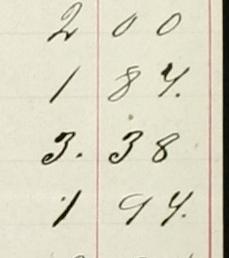 2 00
1 87.
3. 38
1 94.